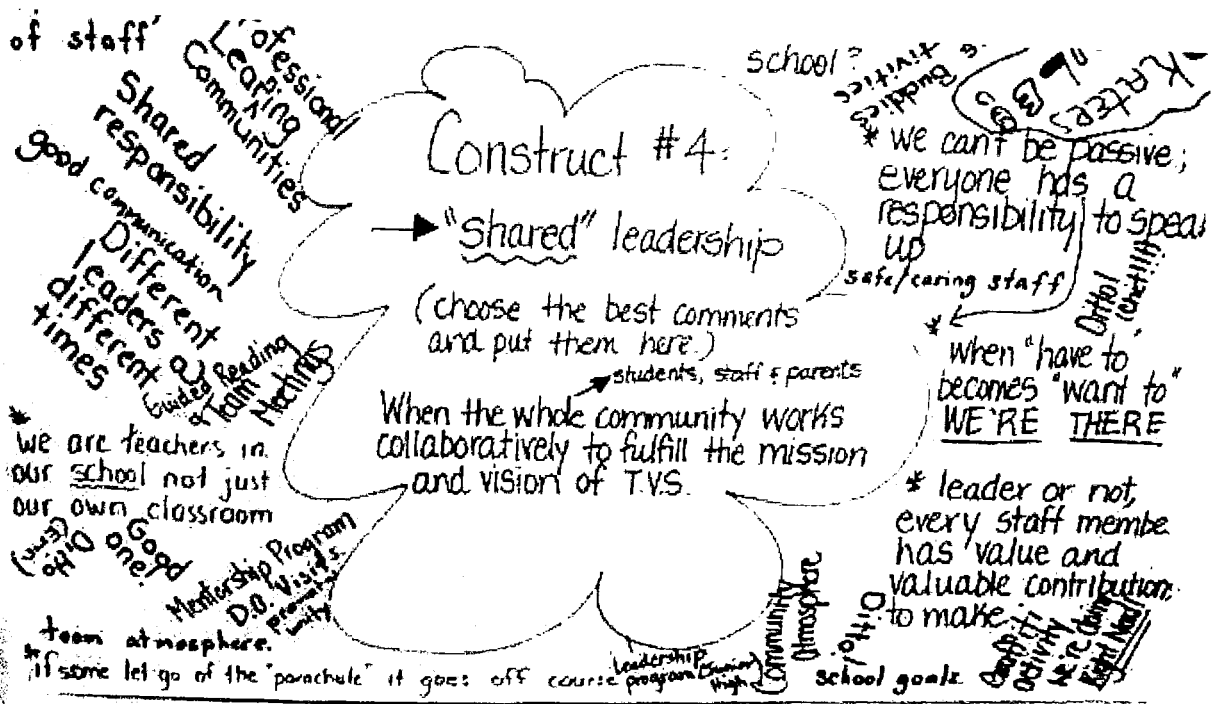 of staff
Professional
Learing
Communities
Shared
responsibility
good communication
Different
leaders @
different
times
Guided Reading
Team
Meetings
* we are teachers in
our school not just
our own classroom
Ditto
Good
one!
Mentorship Program
D.O. Visits
team atmosphere.
* if some let go of the "parachute" it goes off course
Construct #4:
"shared" leadership
(choose the best comments
and put them here.)
students, staff & parents
When the whole community works
collaboratively to fulfill the mission
and vision of T.V.S.
Leadership
program (Junior
High)
Community
Atmosphere
school?
Buddies
* we can't be passive;
everyone has a
responsibility to speak
up
safe/caring staff
Ditto!
* when "have to"
becomes "want to"
WE'RE THERE
* leader or not,
every staff membe
has value and
valuable contribution
to make.
Ditto!
school goals
activity
we're doing
Right Now!